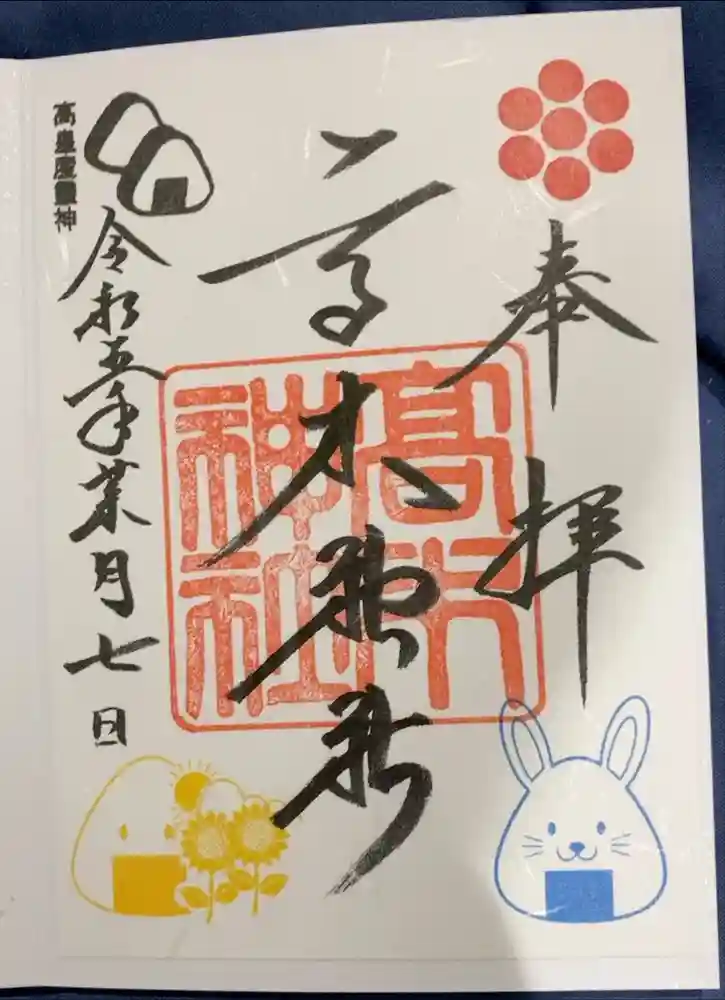 奉拝
高木神社
高木神社
高皇産靈神
令和五年葉月七日